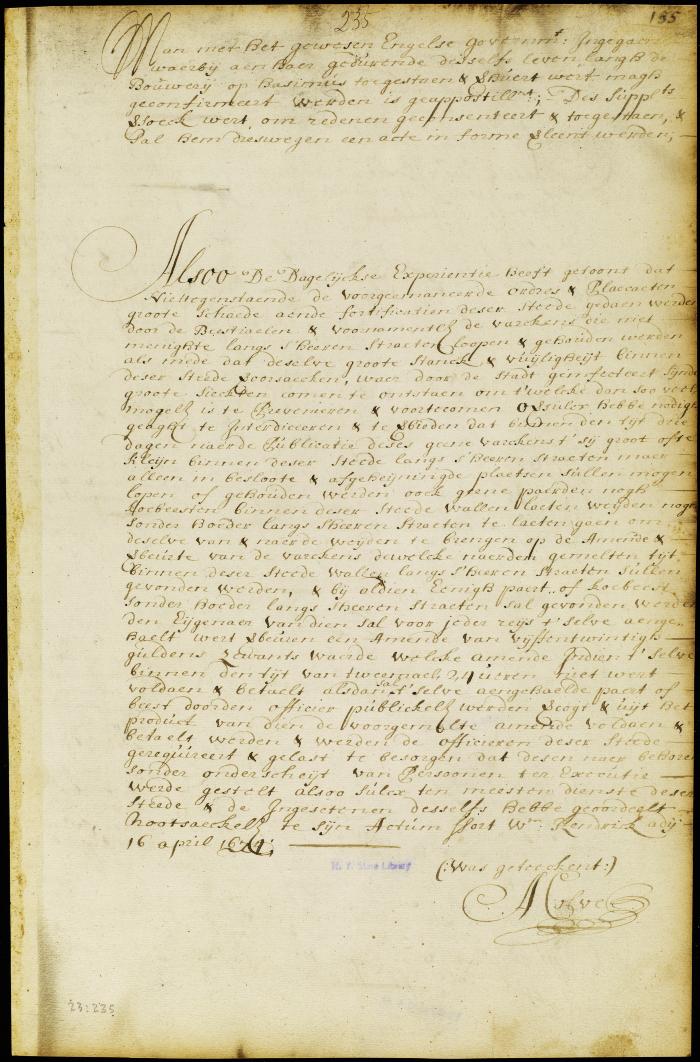 235
155
Man met het gewesen Engelse governmt: Ingegaen
waerby aen haer gedurende desselfs leven langh de
Bouwery op Basimus toegestaen & verhuert wert magh
geconfirmeert werden is geappostilleert; Des Supplts
versoeck wert om redenen geconsenteert & toegestaen, &
sal hem dieswegen een acte in forme verleent werden;
Alsoo De Dagelijckse Experientie heeft getoont dat
Niettegenstaende de voorgeemaneerde ordres & Placcaeten
groote schaede aende fortificatien deser Steede gedaen werden
door de Beestiaelen & voornamentlyk de varckens die met
menighte langs s'heeren Straeten loopen & gehouden werden
als mede dat deselve groote Stanck & vuijligheijt binnen
deser Steede veroorsaecken, waer door de Stadt geinfecteert synde
groote sieckten comen te ontstaen om t'welcke dan soo veel
mogelyk is te Prevenieren & voortecomen hebbe nodigh
geaght te Interdiceeren & te verbieden dat binnen den tyt drie
dagen naerde Publicatie deses geene varckens t'sij groot ofte
kleijn binnen deser Steede langs s'heeren Straeten maer
alleen in beslote & afgeheijnigde plaetsen sullen mogen
lopen of gehouden werden oock geene paerden nogh
koebeesten binnen deser Steede wallen laeten weijden nogh
sonder hoeder langs sheeren Straeten te laeten gaen om
deselve van & naer de weijden te brengen op de Amende &
verbeurte van de varckens dewelcke naer den gemelten tijt
binnen deser Steede wallen langs s'heeren Straeten sullen
gevonden werden, & bij aldien Eenigh paert of koebeest
sonder hoeder langs sheeren Straeten sal gevonden werden
den Eijgenaer van dien sal voor jeder reijs t'selve aenge
haelt wert verbeuren een Amende van vijffentwintigh
guldens zewants waerde welcke amende Indien t'selve
binnen den tijt van tweemael 24 uren niet wert
voldaen & betaelt alsdan sal t'selve aengehaelde paert of
beest door den officier publickelyk werden vercoght & uijt het
product van dien de voorgemelte amende voldaen &
betaelt werden & werden de officieren deser Steede
gerequireert & gelast te besorgen dat desen naer behoren
sonder onderscheijt van Persoonen ter Executie
werde gestelt alsoo sulcx ten meesten dienste deser
Steede & de Ingesetenen desselfs hebbe geoordeelt
nootsaeckelyk te sijn Actum ffort Wm Hendrick ady
16 april 1674;
(:Was geteeckent:)
A Colve
N. Y. State Library
23:235